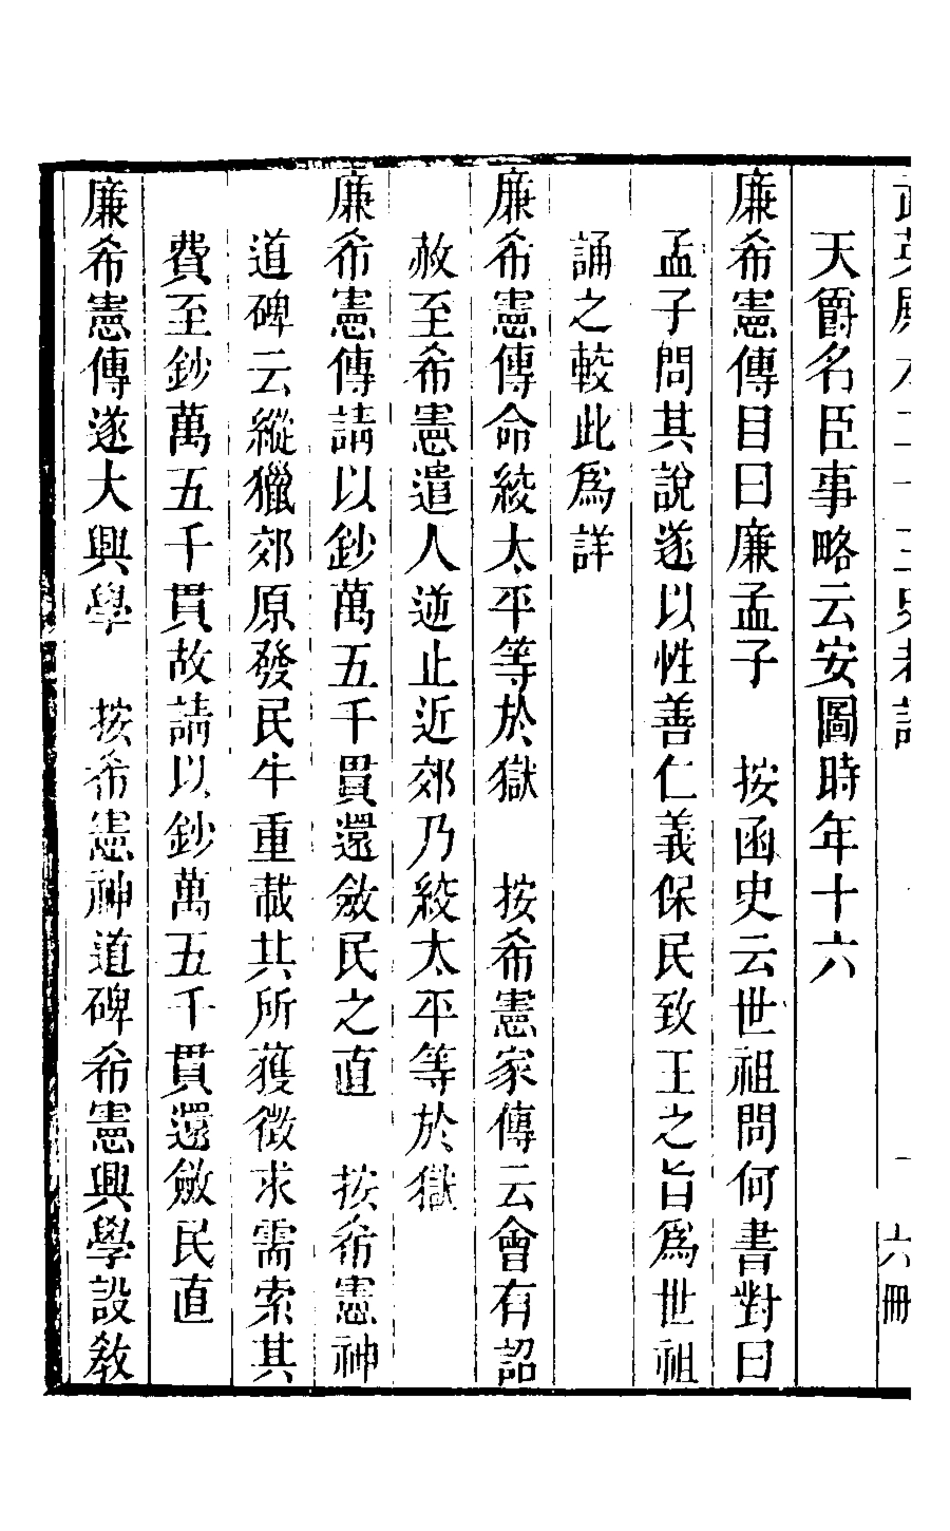 六冊
天爵名臣事略云安圖時年十六
廉希憲傳目曰廉孟子　按函史云世祖問何書對曰
孟子問其說遂以性善仁義保民致王之旨爲世祖
誦之較此爲詳
廉希憲傳命絞太平等於獄　按希憲家傳云會有詔
赦至希憲遣人逆止近郊乃絞太平等於獄
廉希憲傳請以鈔萬五千貫還斂民之直　按希憲神
道碑云縱獵郊原發民牛重載共所獲徵求需索其
費至鈔萬五千貫故請以鈔萬五千貫還斂民直
廉希憲傳遂大興學　按希憲神道碑希憲興學設敎